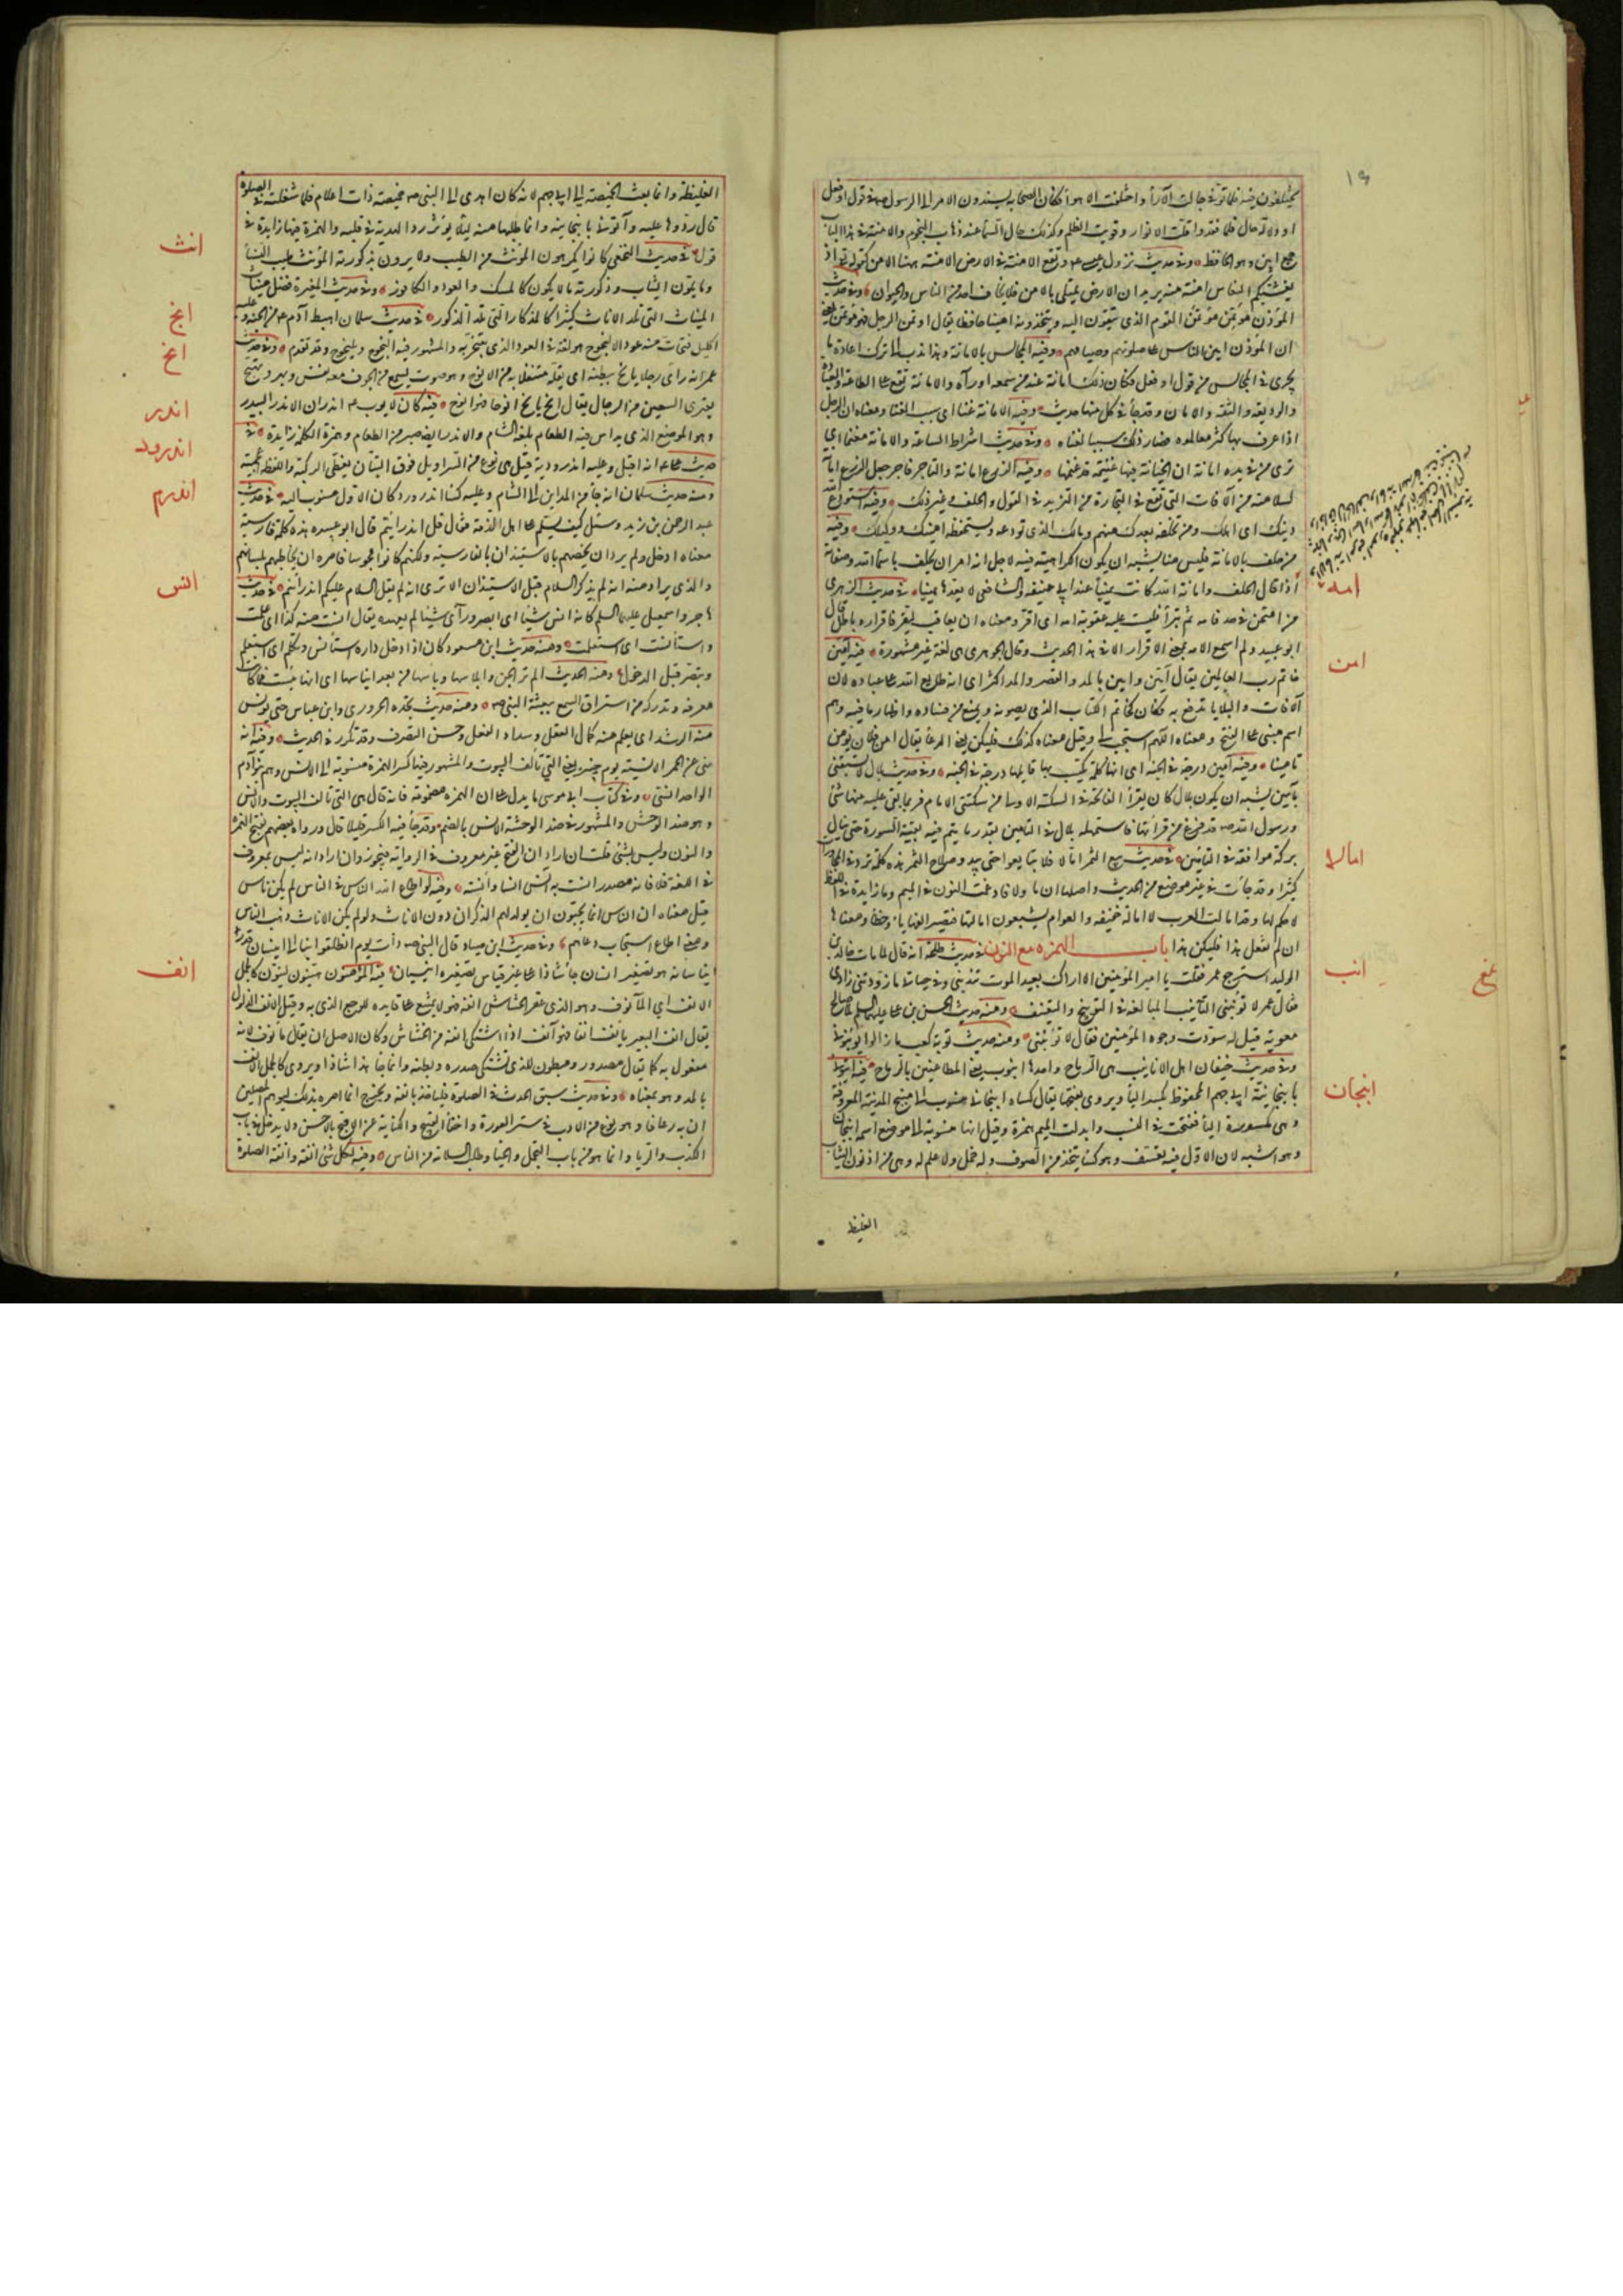 ١٩
او دلالة حال فلما فقد واقلت الانوار وقويت الظلم وكذلك حال السماء عند ذهاب النجوم والامنة في هذا الباب
جمع امين وهو الحافظ وفي حديث نزول عيسى وتقع الامنة في الارض الامنة ههنا الامن كقوله تعالى اذ
يغشيكم النعاس امنة منه يريد ان الارض تمتلى بالامن فلا يخاف احد من الناس والحيوان وفي حديث
المؤذن مؤتمن مؤتمن القوم الذي يثقون اليه ويتخذونه امينا حافظا يقال اوتمن الرجل فهو مؤتمن يعني
ان المؤذن امين الناس على صلوتهم وصيامهم وفيه المجالس بالامانة وهذا ندب الى ترك اعادة ما
يجرى في المجالس من قول او فعل فكان ذلك امانة عند من سمعه او رآه والامانة تقع على الطاعة والعبادة
والوديعة والثقة والامان وقد جاء في كل منها حديث وفيه الامانة غنا اى سبب الغنا ومعناه ان الرجل
اذا عرف بها كثر معاملوه فصار ذلك سببا لغناه وفي حديث اشراط الساعة والامانة مغنما اى
يرى من في يده امانة ان الخيانة فيها غنيمة قد غنمها وفيه الزرع امانة والتاجر فاجر جعل الزرع امانة
لسلامته من الآفات التي تقع في التجارة من التزيد في القول والحلف وغير ذلك وفيه استودع الله
دينك اى اهلك ومن تخلفه بعدك منهم ومالك الذي تودعه وتستحفظه امينك ووكيلك وفيه
من حلف بالامانة فليس منا يشبه ان يكون الكراهية فيه لاجل انه امر ان يحلف باسماء الله وصفاته
امه
اذا قال الحالف وامانة الله كانت يمينا عند ابى حنيفة والشافعى لا يعدها يمينا في حديث الزهرى
من امتحن في حد فامه ثم تبرأ فليست عليه عقوبة امه اى اقر ومعناه ان يعاقب ليقر فاقراره باطل قال
ابو عبيد ولم اسمع الامه بمعنى الاقرار الا في هذا الحديث وقال الجوهرى هى لغة غير مشهورة فيه آمين
امن
خاتم رب العالمين يقال آمين وامين بالمد والقصر والمد اكثر اى انه طابع الله على عباده لان
الآفات والبلايا تدفع به فكان كخاتم الكتاب الذي يصونه ويمنع من فساده واظهار ما فيه وهو
اسم مبنى على الفتح ومعناه اللهم استجب لى وقيل معناه كذلك فليكن يعنى الدعاء يقال امن فلان يؤمن
تامينا وفيه آمين درجة في الجنة اى انها كلمة يكتسب بها قايلها درجة في الجنة وفي حديث بلال لا تسبقنى
بآمين يشبه ان يكون بلال كان يقرأ الفاتحة في السكتة الاولى من سكتتى الامام فربما يبقى عليه منها شئ
ورسول الله صم قد فرغ من قرأتها فاستمهله بلال في التامين بقدر ما يتم فيه بقية السورة حتى ينال
بركة موافقته في التامين في حديث بيع الثمر امالا فلا تبايعوا حتى يبدو صلاح الثمر هذه كلمة ترد في المحاورات
امالا
كثيرا وقد جاءت في غير موضع من الحديث واصلها ان ما ولا فادغمت النون في الميم وما زايدة في اللفظ
لا حكم لها وقد امالت العرب لا امالة خفيفة والعوام يشبعون امالتها فتصير الفها ياء وهو خطا ومعناها
ان لم تفعل هذا فليكن هذا باب الهمزه مع النون في حديث طلحة انه قال لما مات خالد بن
انب
الوليد استرجع عمر فقلت يا امير المؤمنين الا اراك بعيد الموت تندبنى وفي حياتى ما زودتنى زادى
فقال عمر لا تؤنبنى التأنيب المبالغة في التوبيخ والتعنيف ومنه حديث الحسن بن على عليهما السلم لما صالح
معوية قيل له سودت وجوه المؤمنين فقال لا تؤنبنى ومنه حديث توبة كعب ما زالوا يؤنبونى
وفي حديث خيفان اهل الانابيب هى الرماح واحدها انبوب يعنى المطاعين بالرماح فيه ايتونى
انبجان
بانبجانية ابى جهم المحفوظ بكسر الباء ويروى بفتحها يقال كساء انبجانى منسوب الى منبج المدينة المعروفة
وهى مكسورة الباء ففتحت في النسب وابدلت الميم همزة وقيل انها منسوبة الى موضع اسمه انبجان
وهو اشبه لان الاول فيه تعسف وهو كساء يتخذ من الصوف وله خمل ولا علم له وهى من ادون الثياب
الغليظ
الغليظة وانما بعث الخميصة الى ابى جهم لانه كان اهدى الى النبى صم خميصة ذات اعلام فلما شغلته في الصلوة
قال ردوها عليه وأتونى بانبجانيته وانما طلبها منه ليلا يؤثر رد الهدية في قلبه والهمزة فيها زايدة في
انث
قول في حديث النخعى كانوا يكرهون المؤنث من الطيب ولا يرون بذكورته المؤنث طيب النساء
وما يلون الثياب وذكورته ما لا يكون كالمسك والعود والكافور وفي حديث المغيرة فضل ميناث
الميناث التي تلد الاناث كثيرا كالمذكار التي تلد الذكور في حديث سلمان اهبط آدم من الجنة وعليه
انج
اكليل فتحات منه عود الانجوج هو لغة في العود الذي يتبخر به والمشهور فيه النجوج ويلنجوج وقد تقدم وفي حديث
انح
عمر انه راى رجلا يانح ببطنه اى يقله مثقلا به من الانوح وهو صوت يسمع من الجوف معه نفس وبهر ونهيج
يعترى السمين من الرجال يقال انح يانح انوحا فهو انوح فيه كان لايوب اندران الاندر البيدر
اندر
وهو الموضع الذي يداس فيه الطعام بلغة الشام والاندر ايضا صبر من الطعام وهمزة الكلمة زايدة في
اندرود
حديث على انه اقبل وعليه اندروردية قيل هى نوع من السراويل فوق التبان يغطى الركبة واللفظة اعجمية
ومنه حديث سلمان انه جاء من المداين الى الشام وعليه كساء اندرورد كان الاول منسوب اليه في حديث
اندرم
عبد الرحمن بن زيد وسئل كيف يسلم على اهل الذمة فقال قل اندرائيم قال ابو عبيده هذه كلمة فارسية
معناه ادخل ولم يرد ان يخصهم بالاستيذان بالفارسية ولكنهم كانوا مجوسا فامره ان يخاطبهم بلسانهم
والذى يراد منه انه لم يذكر السلام قبل الاستيذان الا ترى انه لم يقل السلام عليكم اندرائيم في حديث
انس
هاجر واسمعيل عليهما السلم كانه انس شيئا اى ابصر ورآى شيئا لم يعهده يقال انست منه كذا اى علمت
واستانست اى استعلمت ومنه حديث ابن مسعود كان اذا دخل داره استأنس وتكلم اى استعلم
وتبصر قبل الدخول ومنه الحديث الم تر الجن وابلاسها وياسها من بعد ايناسها اى انها يئست مما كانت
تعرفه وتدركه من استراق السمع ببعثة النبى صم ومنه حديث نجدة الحرورى وابن عباس حتى يونس
منه الرشد اى يعلم منه كمال العقل وسداد الفعل وحسن التصرف وقد تكرر في الحديث وفيه انه
نهى عن الحمر الانسية يوم خيبر يعنى التي تالف البيوت والمشهور فيها كسر الهمزة منسوبة الى الانس وهم بنو آدم
الواحد انسى وفي كتاب ابى موسى ما يدل على ان الهمزة مضمومة فانه قال هى التي تالف البيوت والانس
وهو ضد الوحش والمشهور في ضد الوحشة الانس بالضم وقد جاء فيه الكسر قليلا قال ورواه بعضهم بفتح الهمزة
والنون وليس بشئ قلت ان اراد ان الفتح غير معروف في الرواية فيجوز وان اراد انه ليس بمعروف
في اللغة فلا فانه مصدر انست به آنس انسا وانسة وفيه لو اطاع الله الناس في الناس لم يكن ناس
قيل معناه ان الناس انما يحبون ان يولد لهم الذكران دون الاناث ولو لم يكن الاناث ذهب الناس
ومعنى اطاع استجاب دعاءهم وفي حديث ابن صياد قال النبى صم ذات يوم انطلقوا بنا الى انيسان قد راينا
شانه هو تصغير انسان جاء شاذا على غير قياس تصغيره انيسان فيه المؤمنون هينون لينون كالجمل
انف
الانف اى المأنوف وهو الذي عقر الخشاش انفه فهو لا يمتنع على قايده للوجع الذي به وقيل الانف الذلول
يقال انف البعير يانف انفا فهو آنف اذا اشتكى انفه من الخشاش وكان الاصل ان يقال مأنوف لانه
مفعول به كما يقال مصدور ومبطون للذى يشتكى صدره وبطنه وانما جاء هذا شاذا ويروى كالجمل الآنف
بالمد وهو بمعناه وفي حديث سبق الحدث في الصلوة فلياخذ بانفه ويخرج انما امره بذلك ليوهم المصلين
ان به رعافا وهو نوع من الادب في ستر العورة واخفاء القبيح والكناية عن الاقبح بالاحسن ولا يدخل في باب
الكذب والريا وانما هو من باب التجمل والحيا وطلب السلامة من الناس وفيه لكل شئ انفة وانفة الصلوة